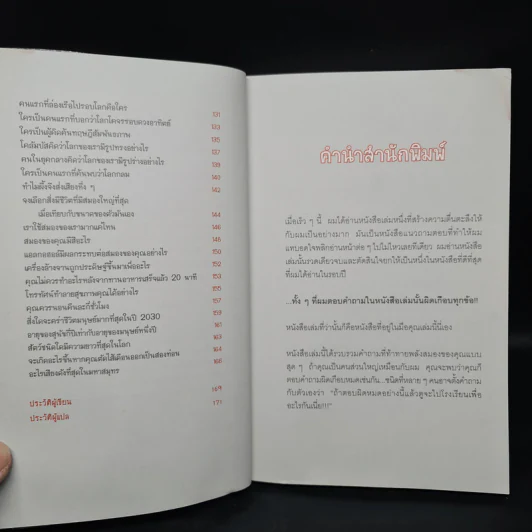 คนแรกที่ล่องเรือไปรอบโลกคือใคร 131
ใครเป็นคนแรกที่บอกว่าโลกโคจรรอบดวงอาทิตย์ 133
ใครเป็นผู้คิดค้นทฤษฎีสัมพัทธภาพ 135
โคลัมบัสคิดว่าโลกของเรามีรูปทรงอย่างไร 137
คนในยุคกลางคิดว่าโลกของเรามีรูปร่างอย่างไร 139
ใครเป็นคนแรกที่ค้นพบว่าโลกกลม 140
ทำไมผึ้งจึงส่งเสียงหึ่ง ๆ 142
จงเลือกสิ่งมีชีวิตที่มีสมองใหญ่ที่สุด
เมื่อเทียบกับขนาดของตัวมันเอง 144
เราใช้สมองของเรามากแค่ไหน 146
สมองของคุณมีสีอะไร
แอลกอฮอล์มีผลกระทบต่อสมองของคุณอย่างไร
เครื่องล้างจานถูกประดิษฐ์ขึ้นมาเพื่ออะไร
คุณไม่ควรทำอะไรหลังจากทานอาหารเสร็จแล้ว 20 นาที
โทรทัศน์ทำลายสุขภาพคุณได้อย่างไร
คุณควรนอนคืนละกี่ชั่วโมง
สิ่งใดจะคร่าชีวิตมนุษย์มากที่สุดในปี 2030
อายุของสุนัขกี่ปีเท่ากับอายุของมนุษย์หนึ่งปี
สัตว์ชนิดใดมีความยาวที่สุดในโลก
จะเกิดอะไรขึ้นหากคุณตัดไส้เดือนออกเป็นสองท่อน
อะไรเสียงดังที่สุดในมหาสมุทร
ประวัติผู้เขียน
ประวัติผู้แปล 171
คำนำสำนักพิมพ์
เมื่อเร็ว ๆ นี้ ผมได้อ่านหนังสือเล่มหนึ่งที่สร้างความตื่นตะลึงให้
กับผมเป็นอย่างมาก มันเป็นหนังสือแนวถามตอบที่ทำให้ผม
แทบอดใจพลิกอ่านหน้าต่อ ๆ ไปไม่ไหวเลยทีเดียว ผมอ่านหนังสือ
เล่มนั้นรวดเดียวจบและตัดสินใจยกให้เป็นหนึ่งในหนังสือที่ดีที่สุด
ที่ผมได้อ่านในรอบปี
...ทั้ง ๆ ที่ผมตอบคำถามในหนังสือเล่มนั้นผิดเกือบทุกข้อ!!
หนังสือเล่มที่ว่านั้นก็คือหนังสือที่อยู่ในมือคุณเล่มนี้นี่เอง
หนังสือเล่มนี้ได้รวบรวมคำถามที่ท้าทายพลังสมองของคุณแบบ
สุด ๆ ถ้าคุณเป็นคนส่วนใหญ่เหมือนกับผม คุณจะพบว่าคุณก็
ตอบคำถามผิดเกือบหมดเช่นกัน...ชนิดที่หลาย ๆ คนอาจตั้งคำถาม
กับตัวเองว่า "ถ้าตอบผิดหมดอย่างนี้แล้วตูจะไปโรงเรียนเพื่อ
อะไรกันเนี่ย!!!"